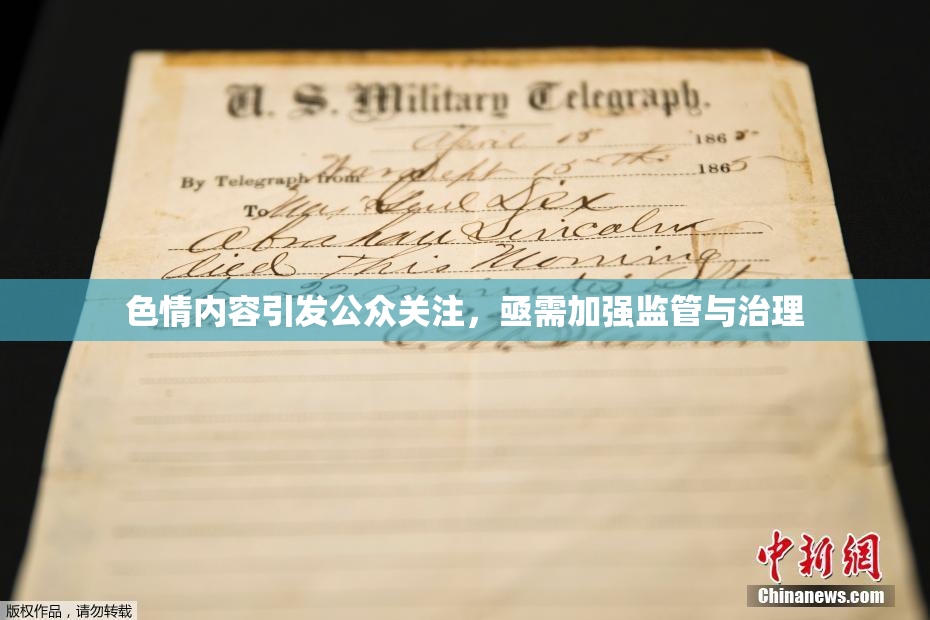 U. S. Military Telegraph.
April 15 1865
By Telegraph from Wash Sept 15th 1865
To Maj Genl Dix
Abraham Lincoln
died This Morning
22 minutes after
色情内容引发公众关注，亟需加强监管与治理
E. M. Stanton
中新网
Chinanews.com
版权作品，请勿转载